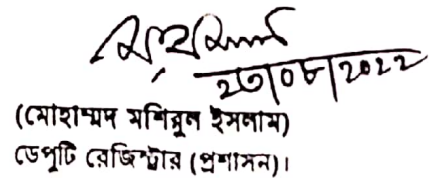 ২৩/০৮/২০২২
(মোহাম্মদ মশিরুল ইসলাম)
ডেপুটি রেজিস্ট্রার (প্রশাসন)।